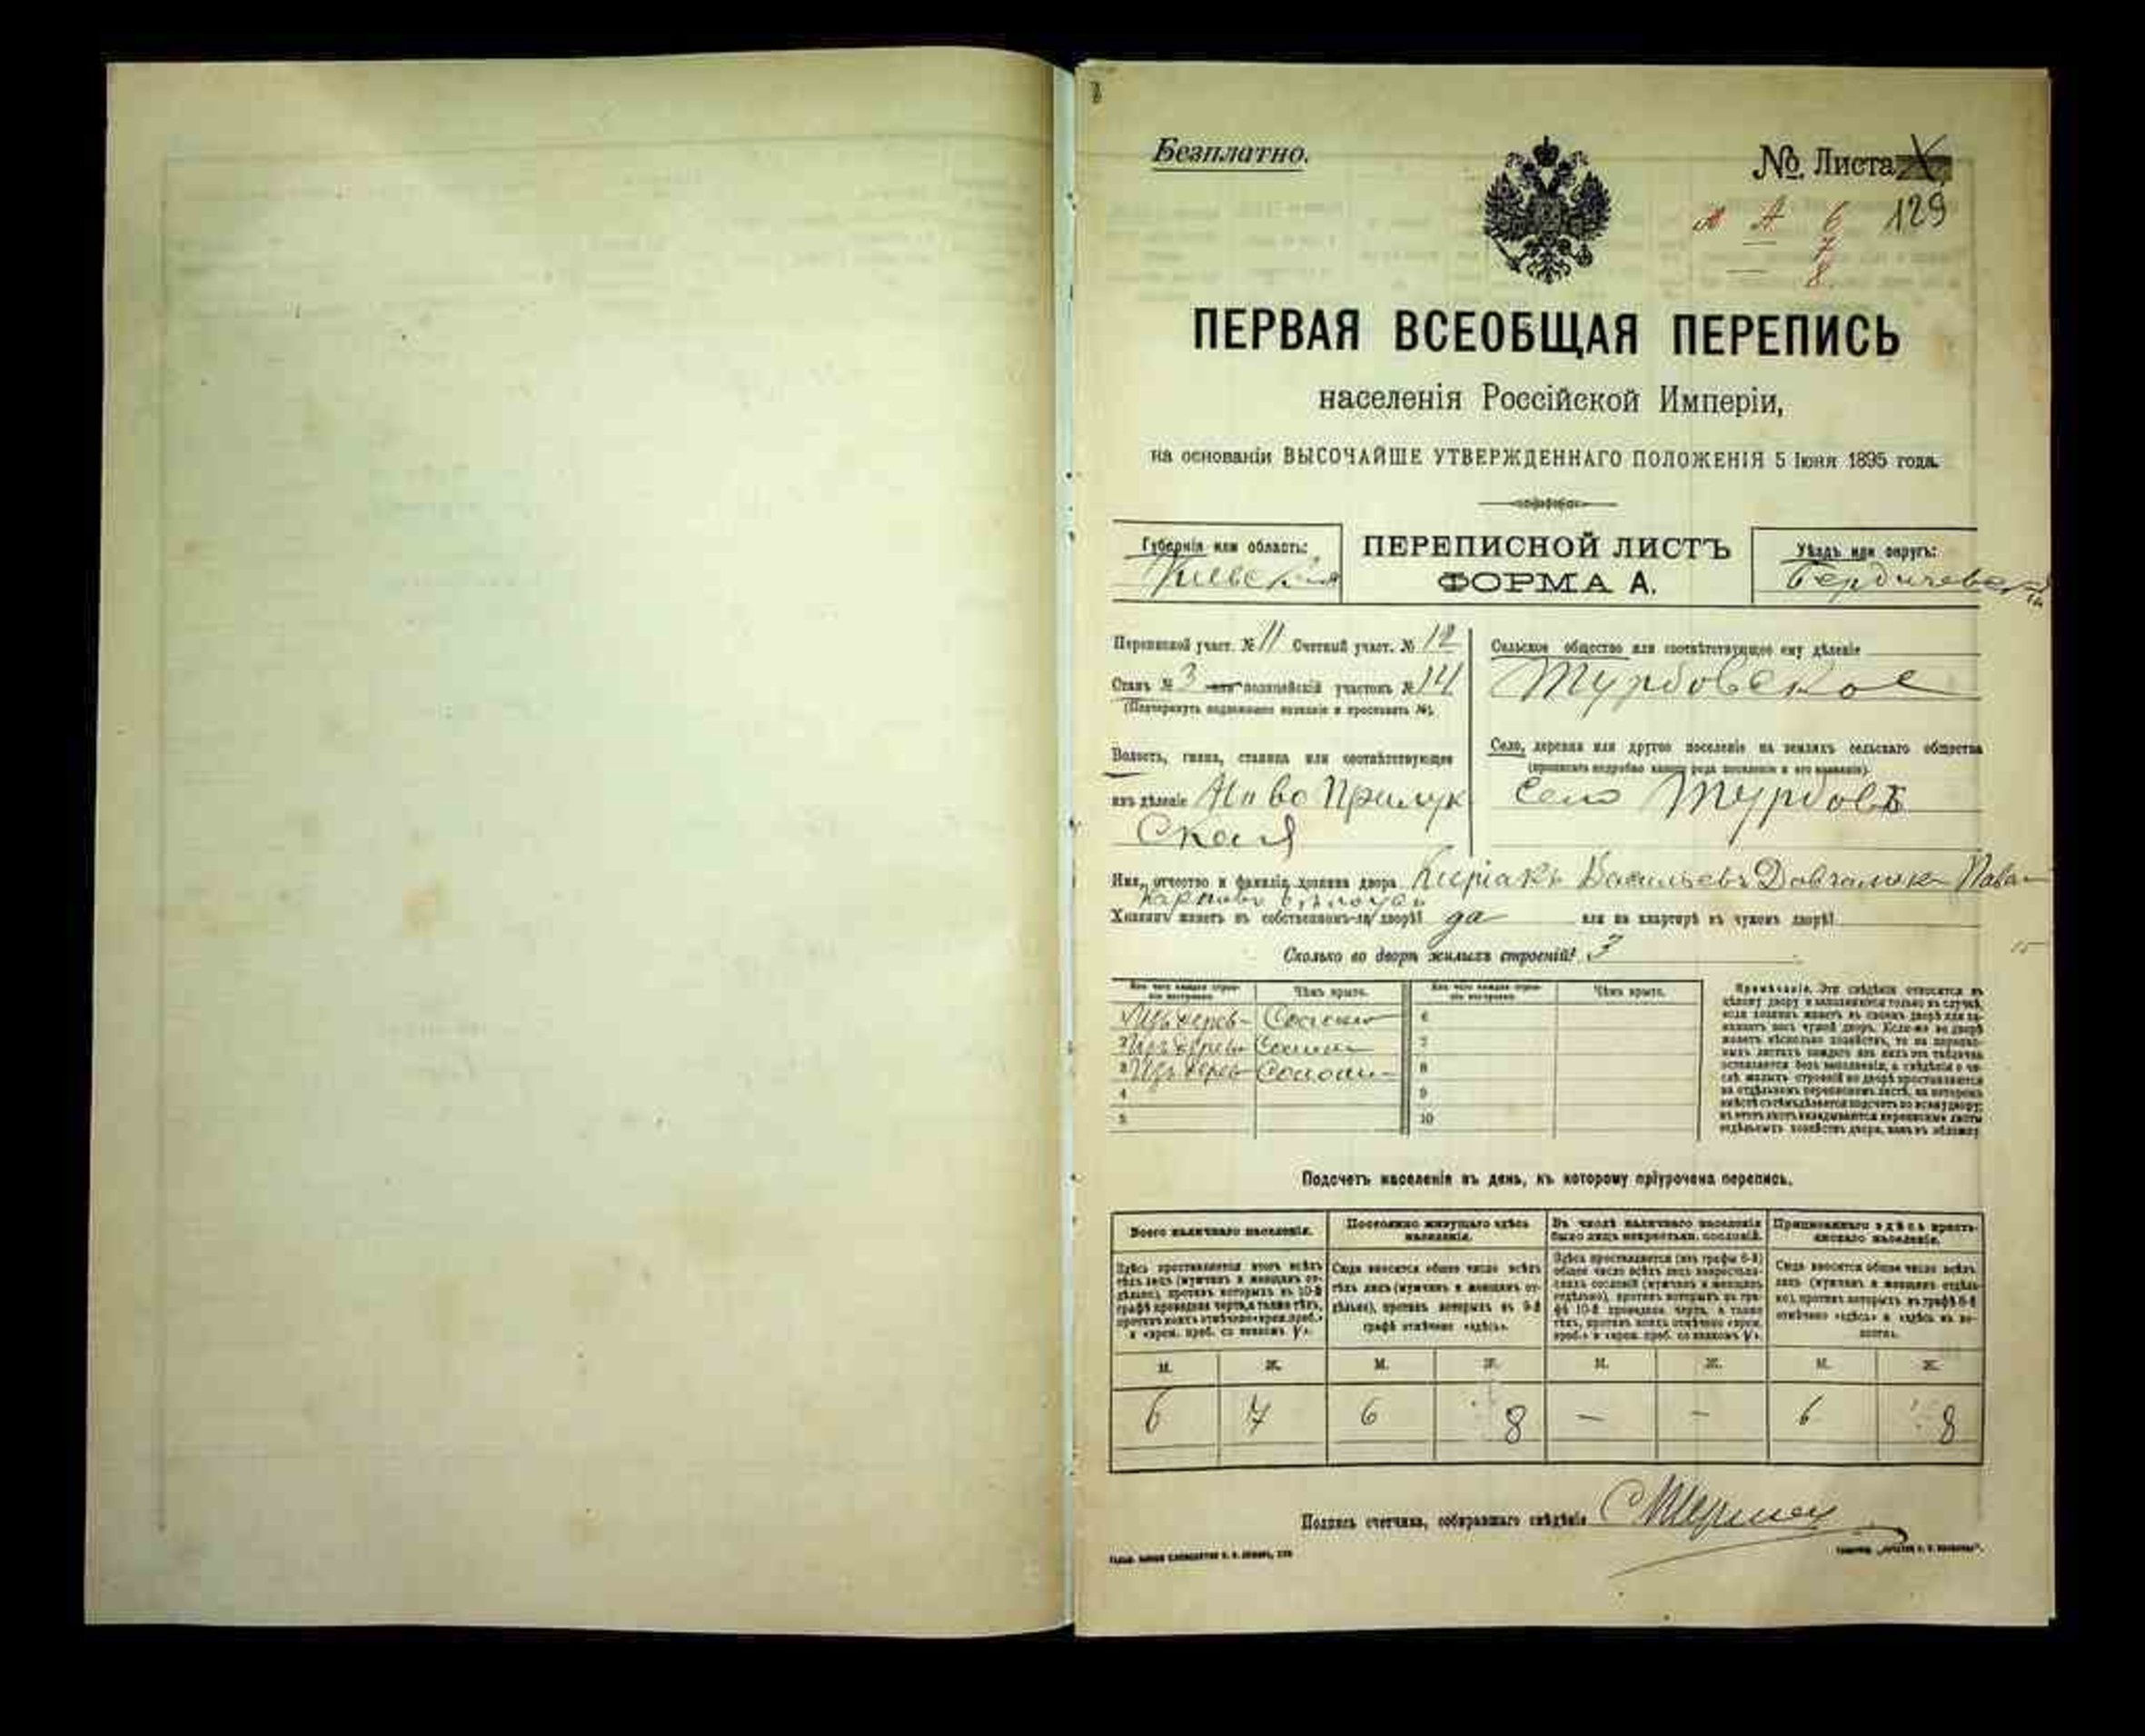 Безплатно.
№ Листа
А 6 129
7
8
ПЕРВАЯ ВСЕОБЩАЯ ПЕРЕПИСЬ
населенія Россійской Имперіи,
на основаніи ВЫСОЧАЙШЕ УТВЕРЖДЕННАГО ПОЛОЖЕНІЯ 5 Іюня 1895 года.
Губернія или область:
Киевская
ПЕРЕПИСНОЙ ЛИСТЪ
ФОРМА А.
Уѣздъ или округъ:
Бердичевскій
Переписной участ. № 11 Счетный участ. № 12
Станъ № 3 или полицейскій участокъ № 14
(Подчеркнуть подлежащее названіе и проставить №).
Волость, гмина, станица или соотвѣтствующее
имъ дѣленіе Ново Прилук
Ская
Сельское общество или соотвѣтствующее ему дѣленіе
Турбовское
Село, деревня или другое поселеніе на земляхъ сельскаго общества
(прописать подробно какого рода поселеніе и его названіе).
Село Турбовъ
Имя, отчество и фамилія хозяина двора Киріакъ Васильевъ
Хозяинъ живетъ въ собственномъ-ли дворѣ? да или на квартирѣ въ чужомъ дворѣ?
Сколько во дворѣ жилыхъ строеній? 3
Изъ чего каждое строеніе построено. Чѣмъ крыто. Изъ чего каждое строеніе построено. Чѣмъ крыто.
1 Изъ дерев Соломою 6
2 Изъ дерев Соломою 7
3 Изъ дерев Соломою 8
4 9
5 10
Примѣчаніе. Эти свѣдѣнія относятся къ
цѣлому двору и заполняются только въ случаѣ,
если хозяинъ живетъ въ своемъ дворѣ или за-
нимаетъ весь чужой дворъ. Если-же во дворѣ
живетъ нѣсколько хозяйствъ, то на перепис-
ныхъ листахъ каждаго изъ нихъ эта табличка
оставляется безъ заполненія, а свѣдѣнія о чи-
слѣ жилыхъ строеній во дворѣ проставляются
на отдѣльномъ переписномъ листѣ, на которомъ
вмѣстѣ съ тѣмъ дѣлается подсчетъ по всему двору;
въ этотъ листъ вкладываются переписные листы
отдѣльныхъ хозяйствъ двора, какъ въ обложку.
Подсчетъ населенія въ день, къ которому пріурочена перепись.
Всего наличнаго населенія.
Здѣсь проставляется итогъ всѣхъ
тѣхъ лицъ (мужчинъ и женщинъ от-
дѣльно), противъ которыхъ въ 10-й
графѣ проведена черта, а также тѣхъ,
противъ коихъ отмѣчено «врем. преб.»
и «врем. преб. со знакомъ V».
Постоянно живущаго здѣсь
населенія.
Сюда вносится общее число всѣхъ
тѣхъ лицъ (мужчинъ и женщинъ от-
дѣльно), противъ которыхъ въ 9-й
графѣ отмѣчено «здѣсь».
Въ числѣ наличнаго населенія
было лицъ некрестьян. сословій.
Здѣсь проставляется (изъ графы 6-й)
общее число всѣхъ лицъ некрестьян-
скихъ сословій (мужчинъ и женщинъ
отдѣльно), противъ которыхъ въ гра-
фѣ 10-й проведена черта, а также
тѣхъ, противъ коихъ отмѣчено «врем.
преб.» и «врем. преб. со знакомъ V».
Приписаннаго здѣсь кресть-
янскаго населенія.
Сюда вносится общее число всѣхъ
лицъ (мужчинъ и женщинъ отдѣль-
но), противъ которыхъ въ графѣ 8-й
отмѣчено «здѣсь» и «здѣсь въ во-
лости».
М. Ж. М. Ж. М. Ж. М. Ж.
6 7 6 8 — — 6 8
Подпись счетчика, собиравшаго свѣдѣнія